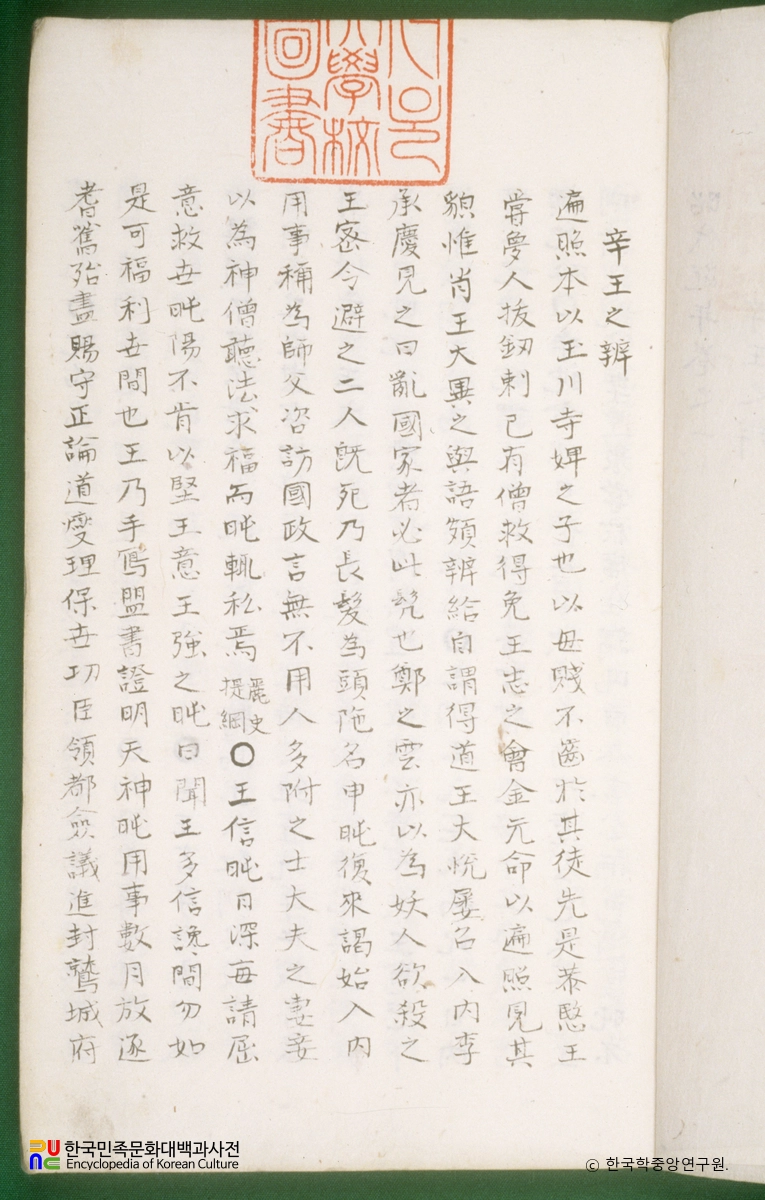 辛王之辨
遍照本以玉川寺婢之子也以毋賤不齒於其徒先是恭愍王
甞夢人拔釼刺已有僧救得免王志之會金元命以遍照見其
貌惟肖王大異之與語頗辨給自謂得道王大恱屢召入内李
承慶見之曰亂國家者必此髠也鄭之雲亦以為妖人欲殺之
王宻令避之二人既死乃長髮為頭陁名申旽復來謁始入内
用事稱為師父咨訪國政言無不用人多附之士大夫之妻妾
以為神僧聽法求福而旽輒私焉麗史提綱〇王信旽日深每請屈
意救世旽陽不肯以堅王意王強之旽曰聞王多信讒間勿如
是可福利世間也王乃手寫盟書證明天神旽用事數月放逐
耆舊殆盡賜守正論道燮理保世功臣領都僉議進封鷲城府
學校
圖書
한국민족문화대백과사전
Encyclopedia of Korean Culture
© 한국학중앙연구원.